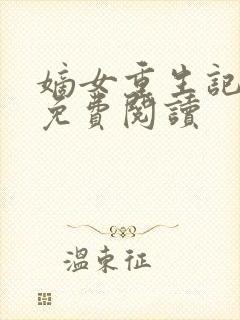 嫡女重生記
免費閱讀
溫東征